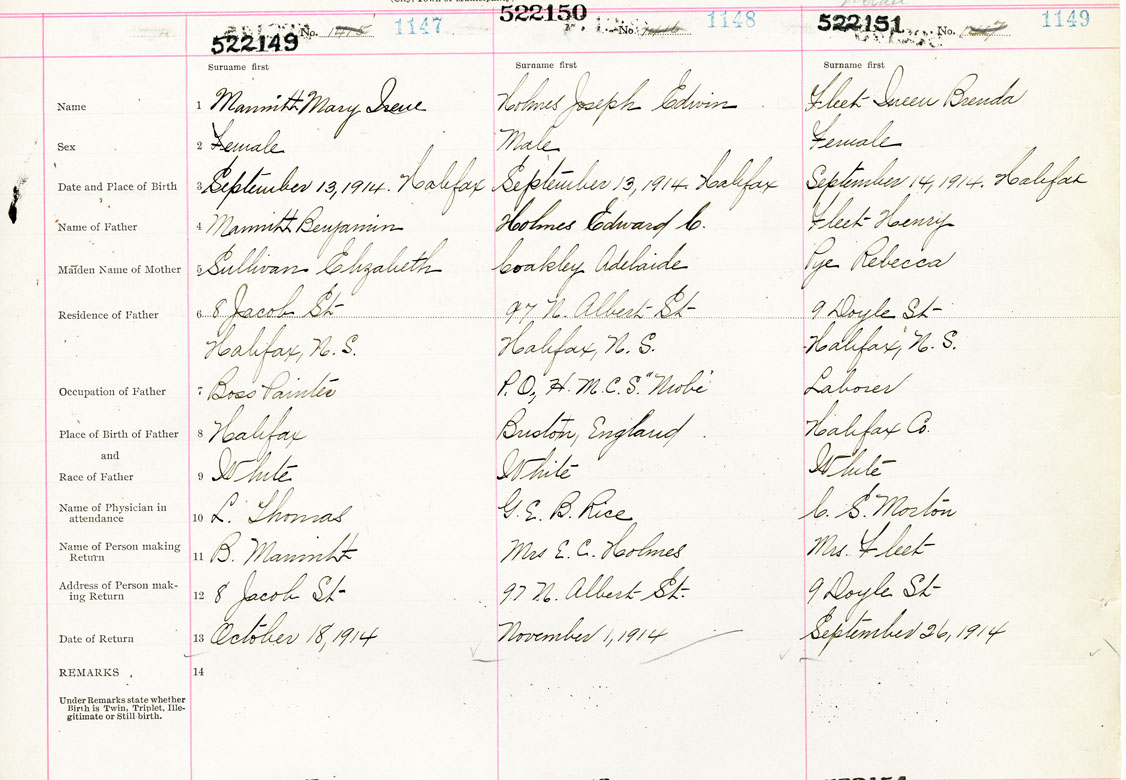 (City, Town or Municipality)
522149 No. 1147
522150 No. 1148
522151 No. 1149
Surname first Surname first Surname first
Name 1 Mary Irene Holmes Joseph Edwin Fleet Queen Brenda
Sex 2 Female Male Female
Date and Place of Birth 3 September 13, 1914. Halifax September 13, 1914 Halifax September 14, 1914. Halifax
Name of Father 4 Benjamin Holmes Edward C. Fleet Henry
Maiden Name of Mother 5 Sullivan Elizabeth Coakley Adelaide Pye Rebecca
Residence of Father 6 8 Jacob St 97 N. Albert St 9 Doyle St
Halifax, N.S. Halifax, N.S. Halifax, N.S.
Occupation of Father 7 Boss Painter P.O, H.M.C.S. "Niobe" Laborer
Place of Birth of Father 8 Halifax England Halifax Co.
and
Race of Father 9 White White White
Name of Physician in
attendance 10 L. Thomas G. E. B. Rice C. S. Morton
Name of Person making
Return 11 B. Mrs E. C. Holmes Mrs. Fleet
Address of Person mak-
ing Return 12 8 Jacob St 97 N. Albert St. 9 Doyle St
Date of Return 13 October 18, 1914 November 1, 1914 September 26, 1914
REMARKS 14
Under Remarks state whether
Birth is Twin, Triplet, Ille-
gitimate or Still-birth.